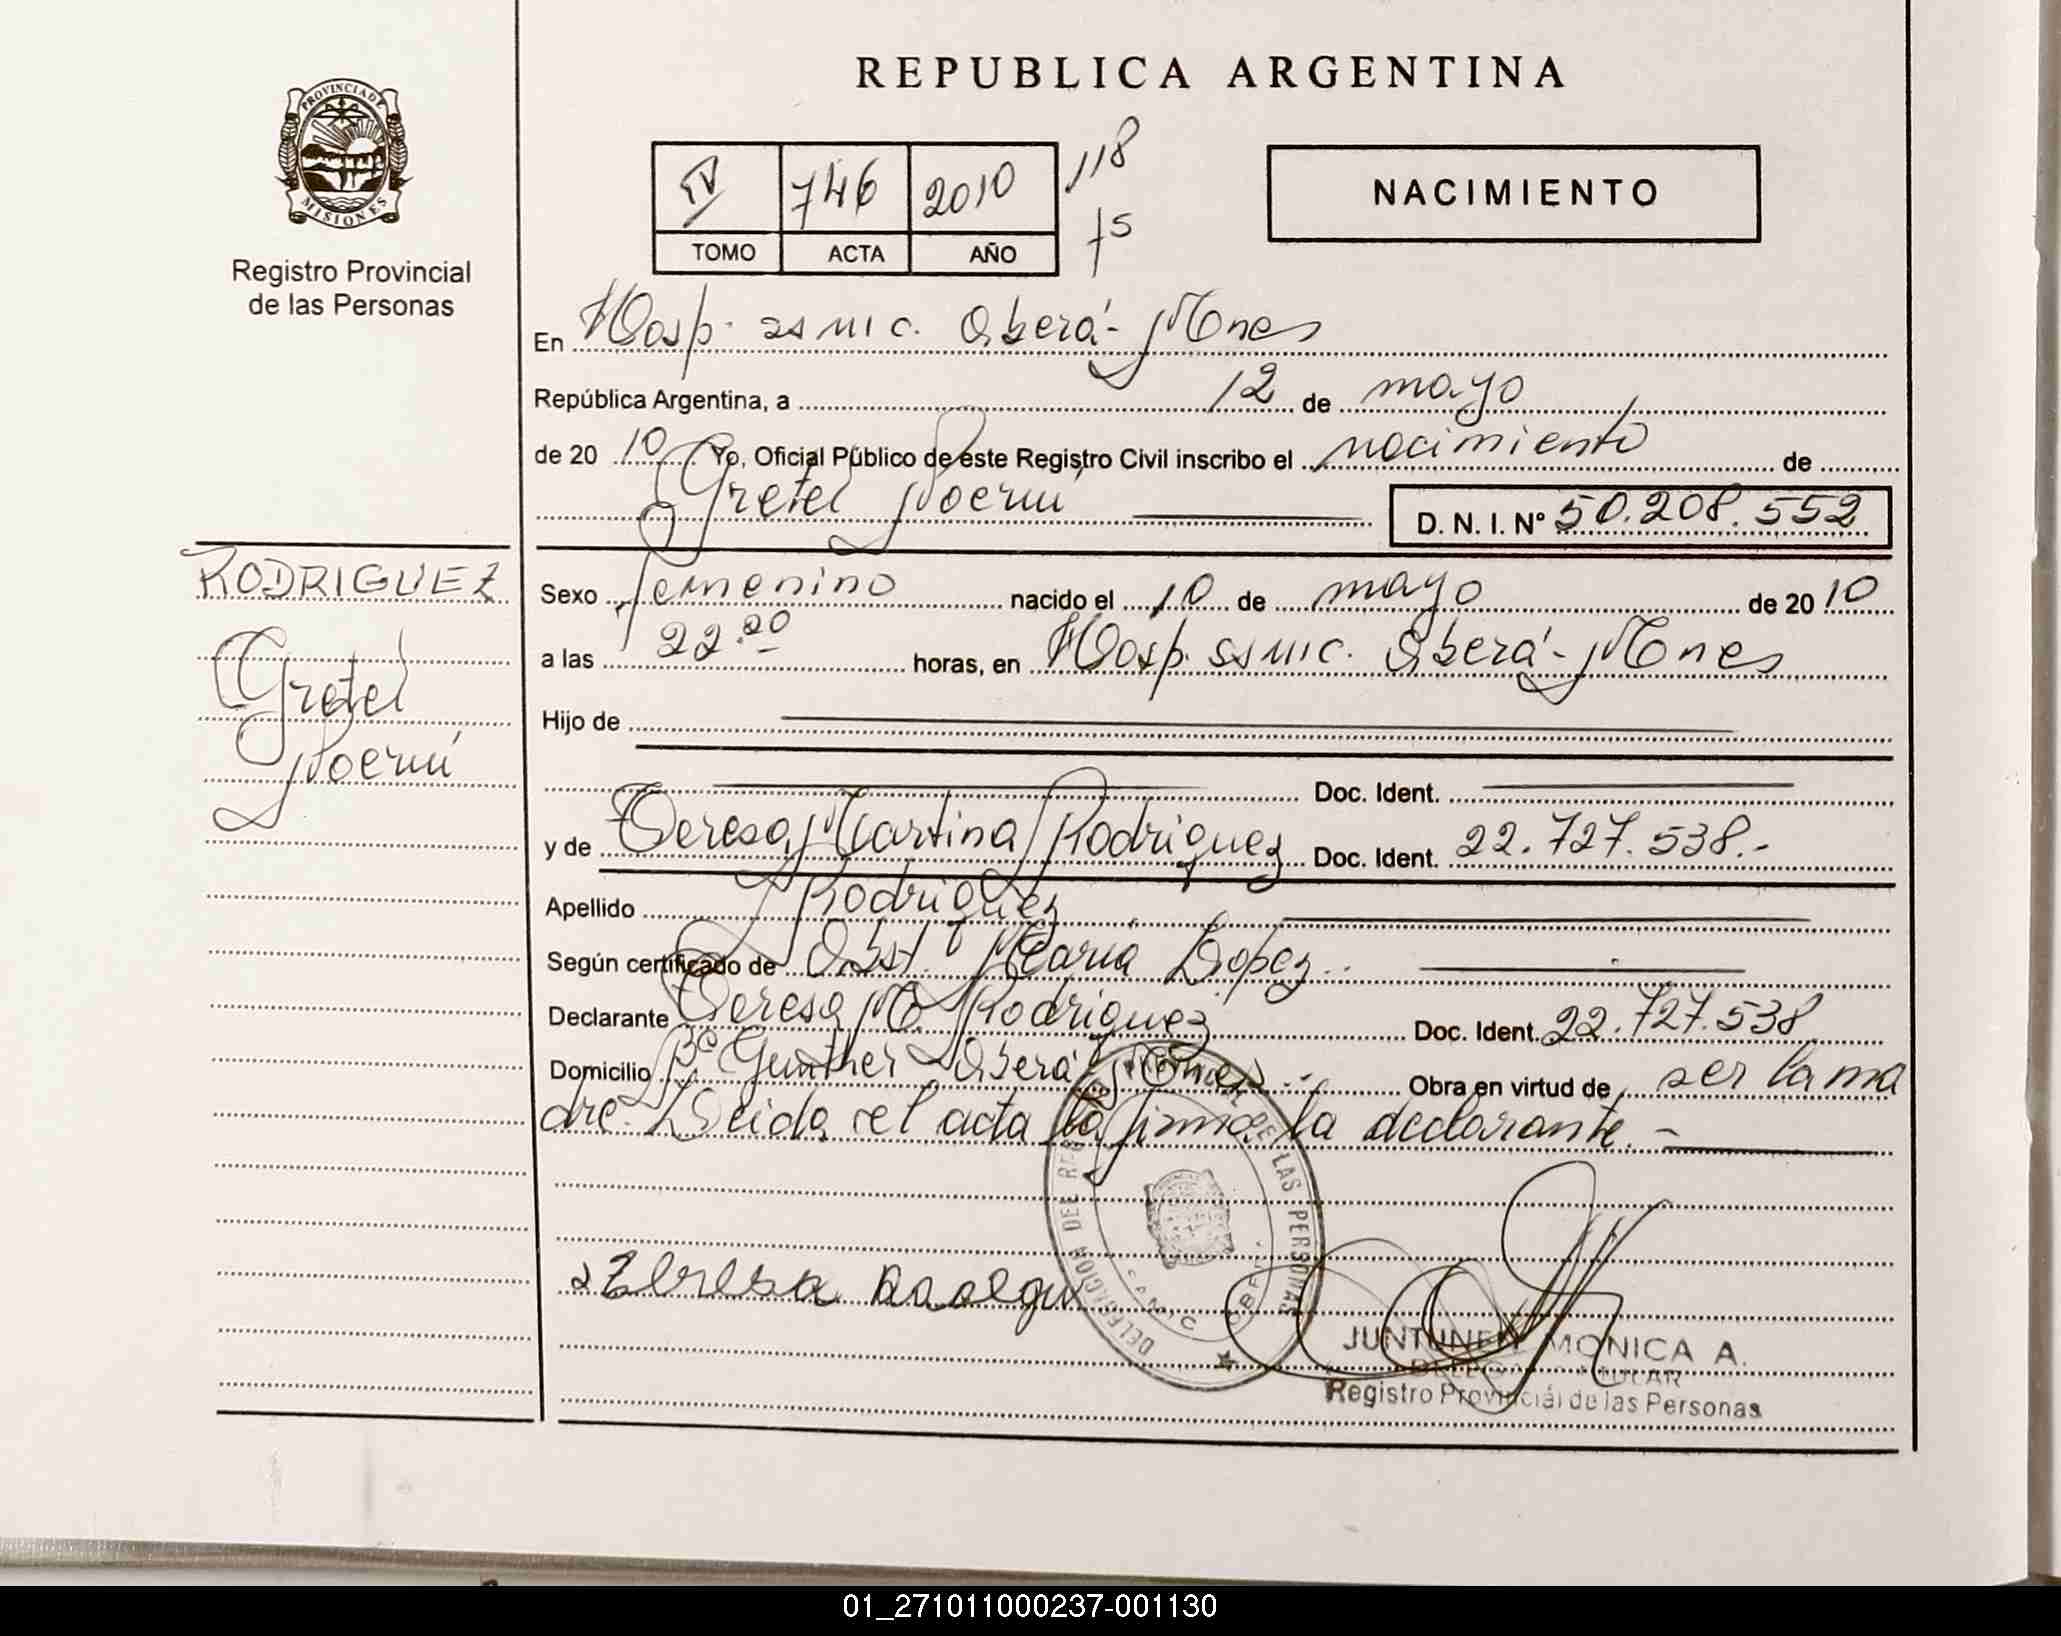 REPUBLICA ARGENTINA
PROVINCIA DE
MISIONES
Registro Provincial
de las Personas
IV 746 2010 118
75
TOMO ACTA AÑO
NACIMIENTO
En Hosp. Oberá- Mnes
República Argentina, a 12 de mayo
de 20 10 Yo, Oficial Público de este Registro Civil inscribo el nacimiento de
Gretel D. N. I. Nº 50.208.552
RODRIGUEZ
Gretel
Sexo femenino nacido el 10 de mayo de 20 10
a las 22.20 horas, en Hosp. Oberá- Mnes
Hijo de
Doc. Ident.
y de Teresa Martina Rodriguez Doc. Ident. 22.727.538.-
Apellido Rodriguez
Según certificado de Obst. Maria Lopez
Declarante Teresa M. Rodriguez Doc. Ident. 22.727.538
Domicilio Bº Gunther Oberá Mnes Obra en virtud de ser la ma
dre. Leida el acta la firma la declarante.-
DELEGACION DEL REG PERSONAS DE LAS
Teresa
JUNTUNEN MONICA A.
Registro Provincial de las Personas
01_271011000237-001130